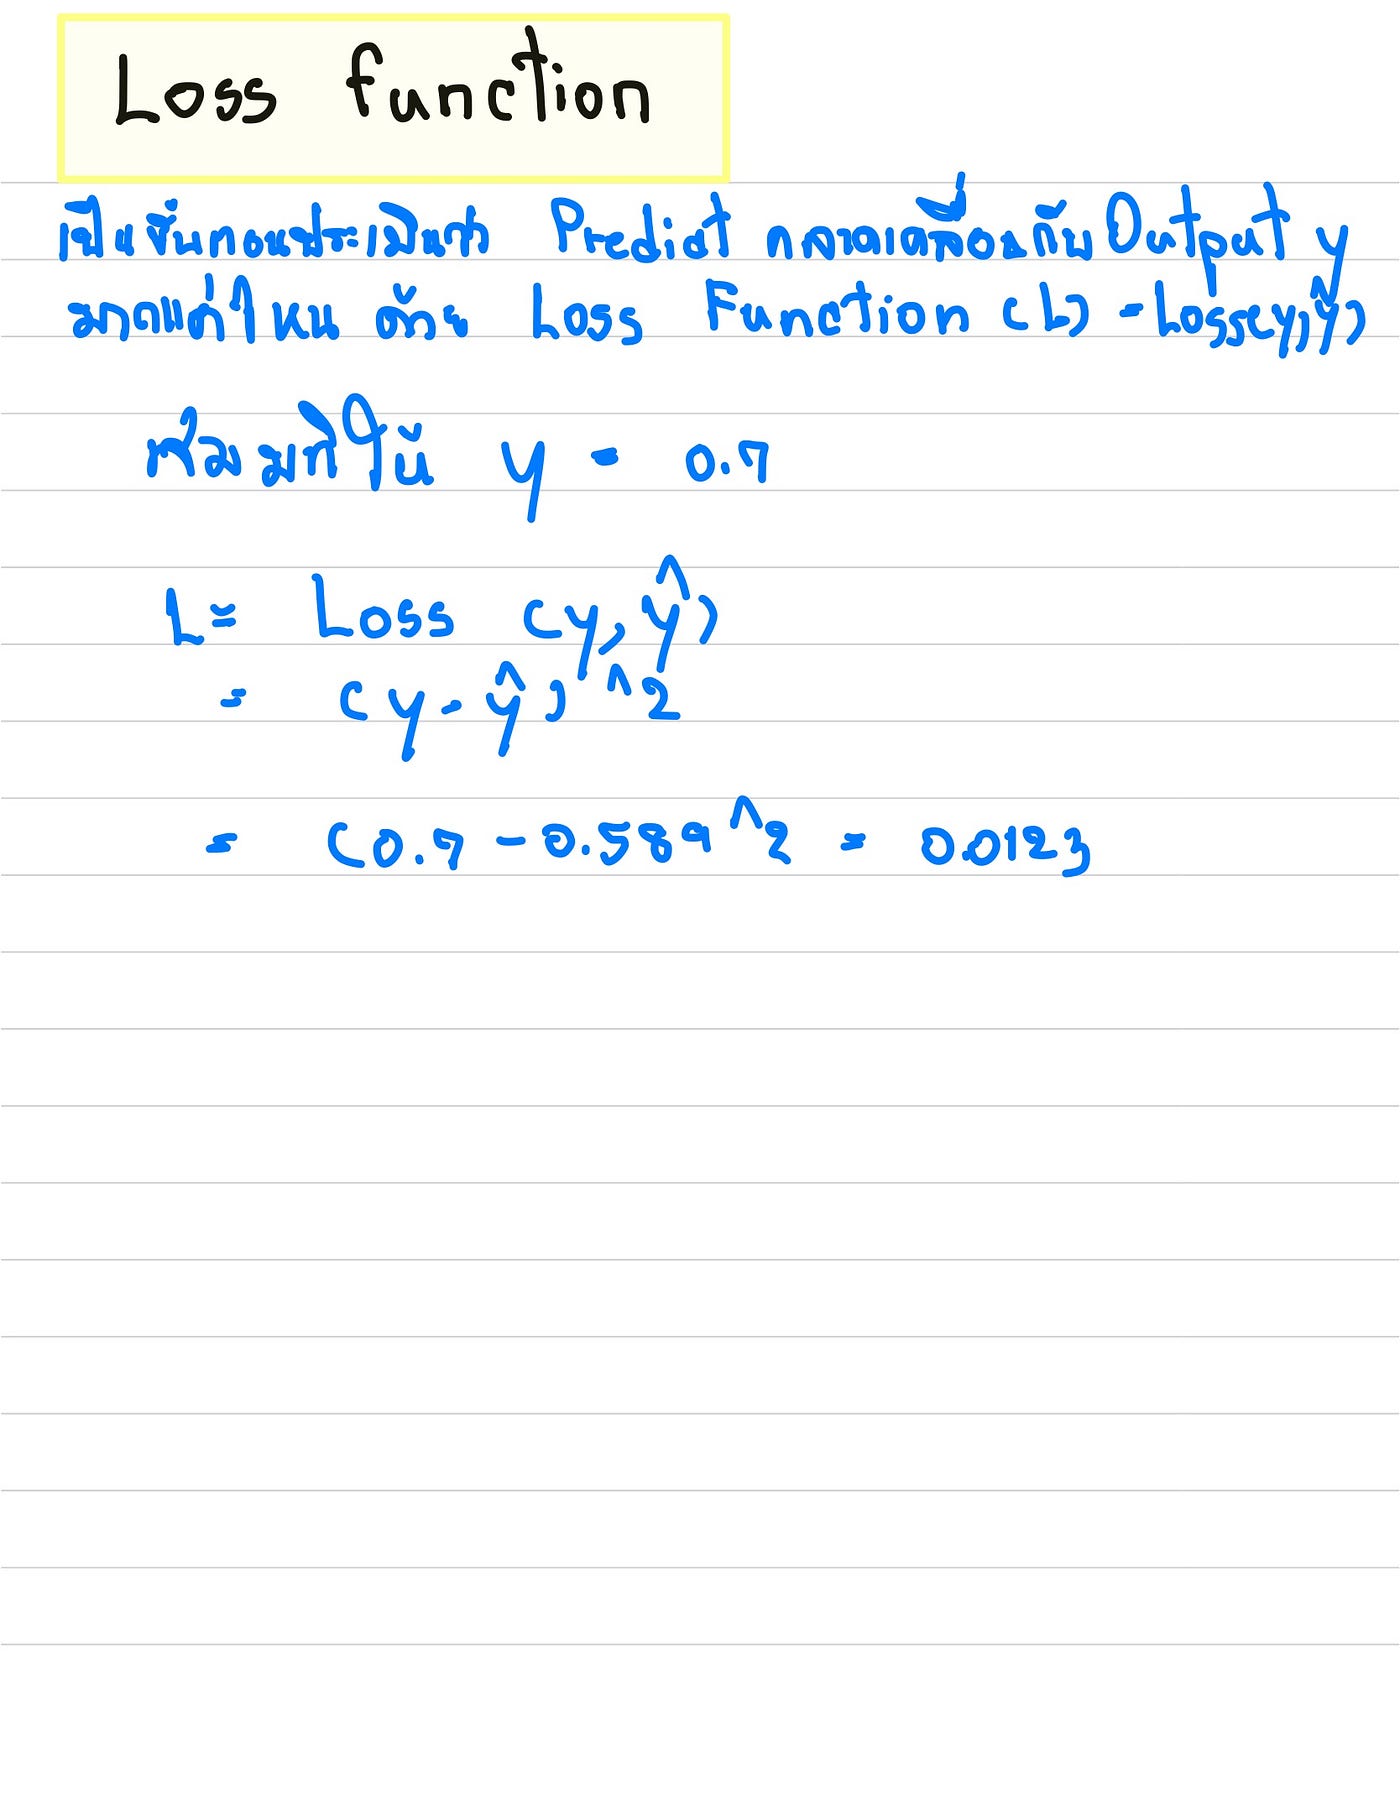 Loss function
เป็นขั้นตอนประเมินว่า Predict คลาดเคลื่อนกับ Output y
มากแค่ไหน ด้วย Loss Function (L) = Loss(y,ŷ)
สมมติให้ y = 0.7
L = Loss (y, ŷ)
= (y - ŷ) ^2
= (0.7 - 0.589 ^2 = 0.0123